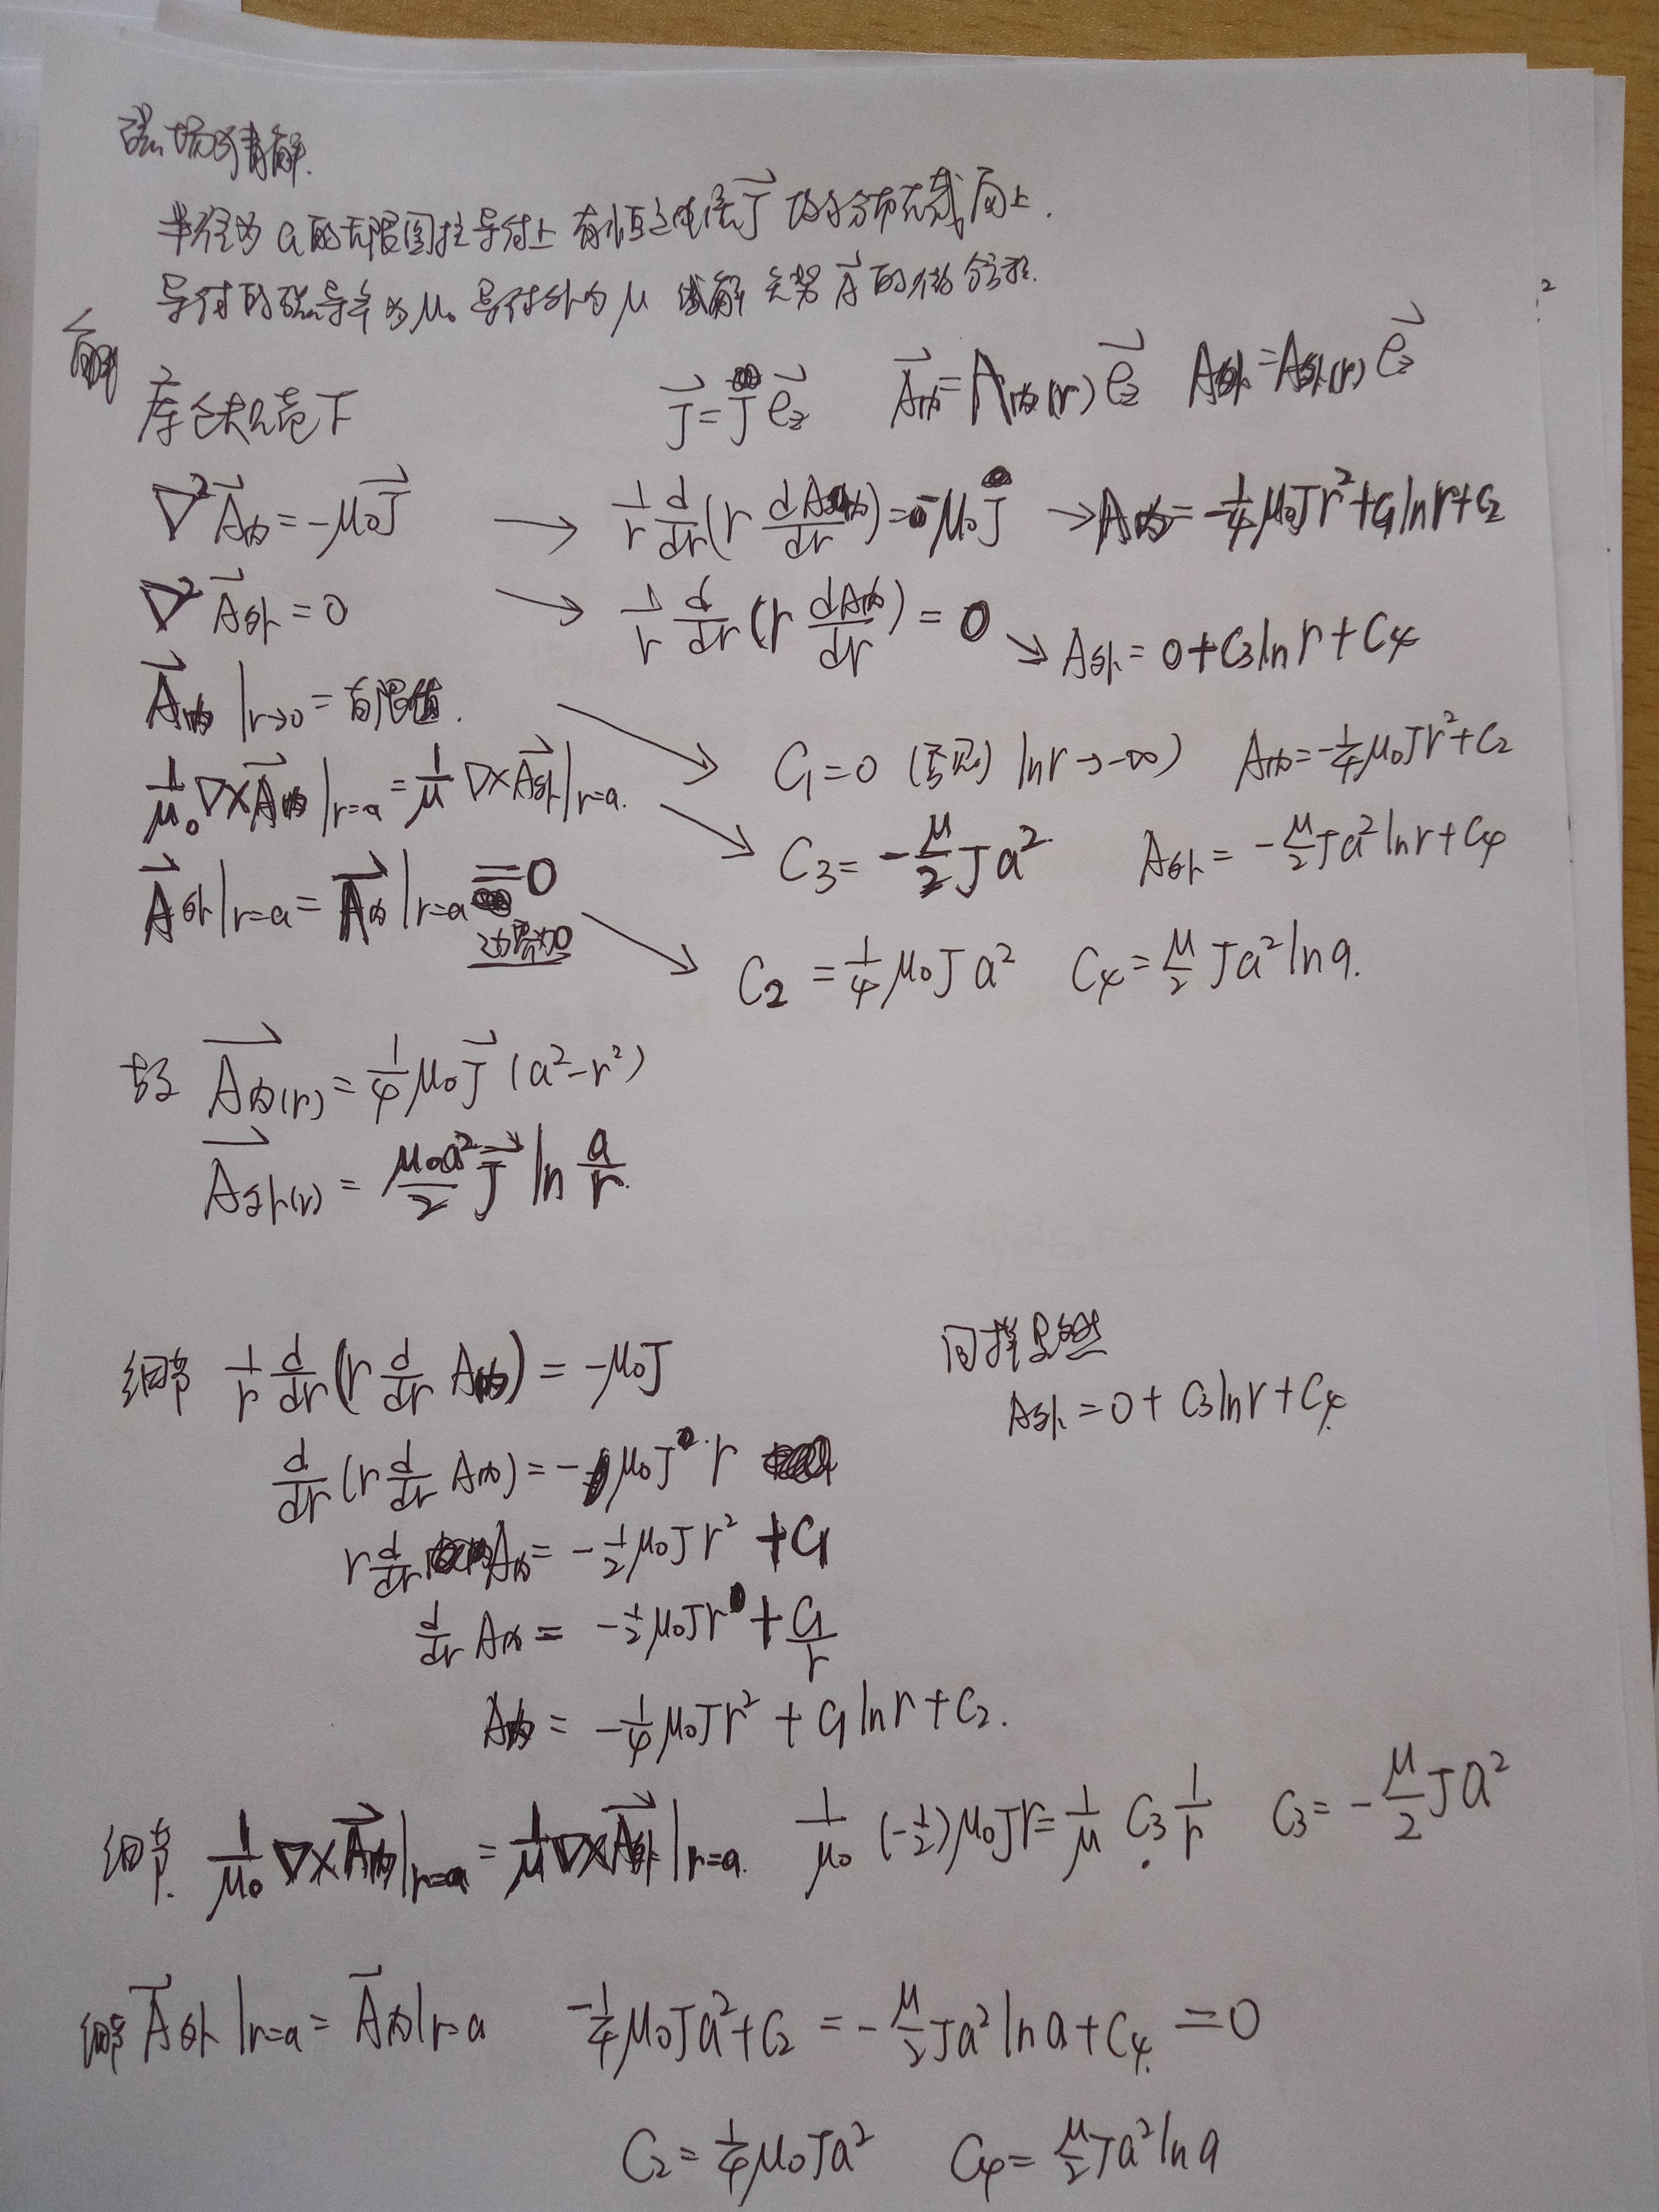 磁场求精解.
半径为a的无限圆柱导体上 有恒定电流J⃗ 均匀分布于截面上.
导体的磁导率为μ₀ 导体外为μ 试解矢势A⃗的微分方程.
解
库仑规范下 J⃗=J e⃗z A⃗内=A内(r) e⃗z A外=A外(r) e⃗z
∇²A⃗内=-μ₀J⃗ → 1/r d/dr(r dA内/dr)=-μ₀J → A内=-1/4 μ₀Jr²+C₁lnr+C₂
∇²A⃗外=0 → 1/r d/dr(r dA内/dr)=0 → A外=0+C₃lnr+C₄
A⃗内|r→0=有限值. → C₁=0 (否则 lnr→-∞) A内=-1/4 μ₀Jr²+C₂
1/μ₀ ∇×A⃗内|r=a=1/μ ∇×A⃗外|r=a. → C₃=-μ/2 Ja² A外=-μ/2 Ja²lnr+C₄
A⃗外|r=a=A⃗内|r=a=0 → C₂=1/4 μ₀Ja² C₄=μ/2 Ja²lna.
边界为0
故 A⃗内(r)=1/4 μ₀J⃗(a²-r²)
A⃗外(r)=μ₀a²/2 J⃗ ln a/r.
细节 1/r d/dr(r d/dr A内)=-μ₀J
同样显然
A外=0+C₃lnr+C₄
d/dr(r d/dr A内)=-μ₀J·r
r d/dr A内=-1/2 μ₀Jr²+C₁
d/dr A内=-1/2 μ₀Jr+C₁/r
A内=-1/4 μ₀Jr²+C₁lnr+C₂.
细节. 1/μ₀ ∇×A⃗内|r=a=1/μ ∇×A⃗外|r=a. 1/μ₀ (-1/2)μ₀Jr=1/μ C₃ 1/r C₃=-μ/2 Ja²
细节 A⃗外|r=a=A⃗内|r=a -1/4 μ₀Ja²+C₂=-μ/2 Ja²lna+C₄=0
C₂=1/4 μ₀Ja² C₄=μ/2 Ja²lna